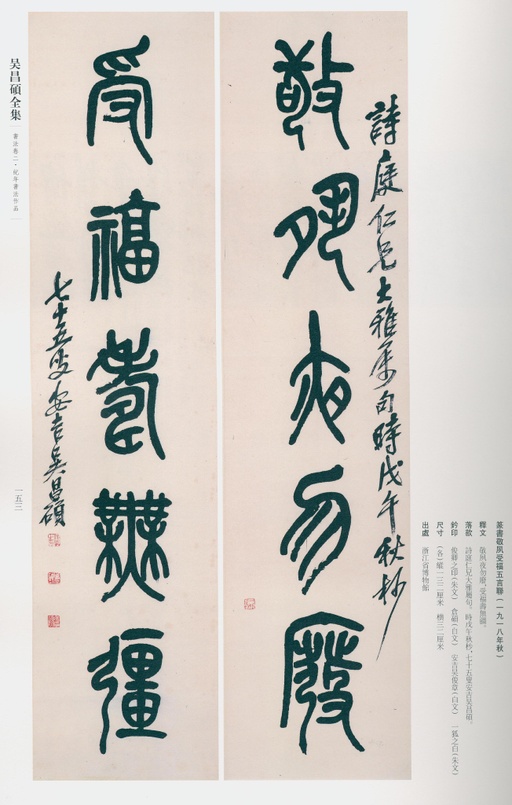 敬夙夜勿廢
詩庭仁兄大雅属句時戊午秋杪
受福壽無疆
七十五叟安吉吳昌碩
篆書敬夙受福五言聯(一九一八年秋)
釋文 敬夙夜勿廢,受福壽無疆。
落款 詩庭仁兄大雅屬句。時戊午秋杪,七十五叟安吉吳昌碩。
鈐印 俊卿之印(朱文) 倉碩(白文) 安吉吳俊章(白文) 一狐之白(朱文)
尺寸 (各)縱一三二厘米 橫三二厘米
出處 浙江省博物館
吴昌碩全集
書法卷二·紀年書法作品
一五三